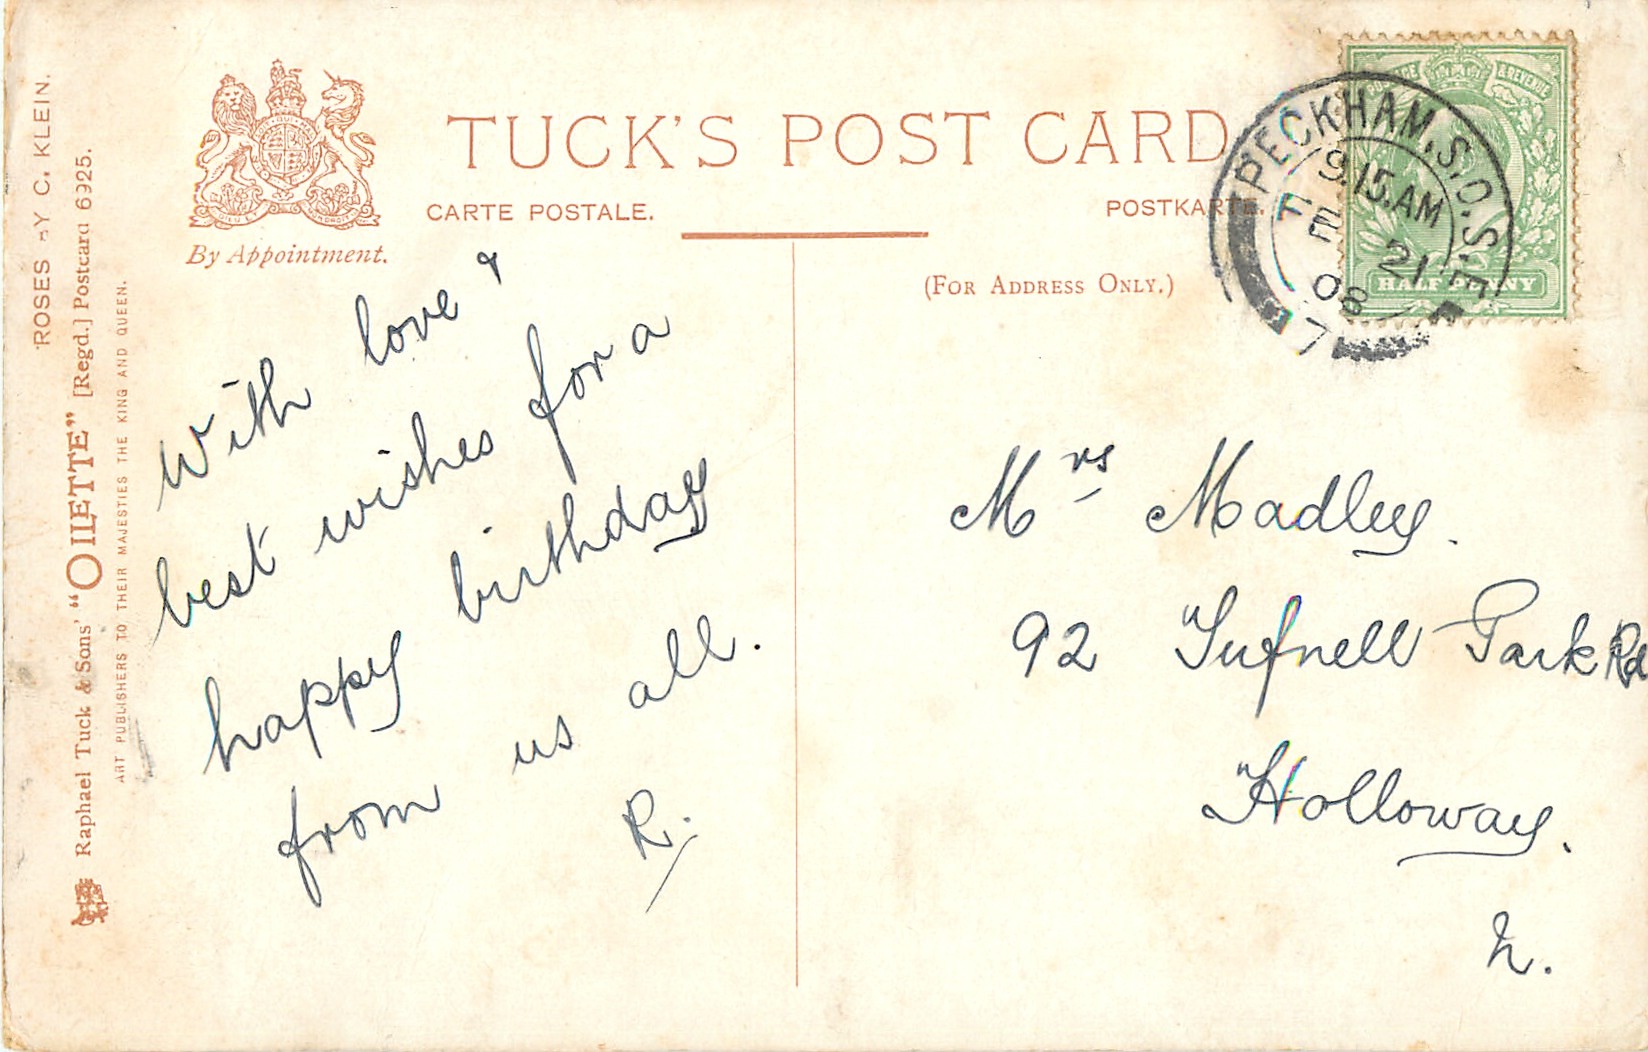 ROSES BY C. KLEIN.
Raphael Tuck & Sons' "OILETTE" [Regd.] Postcard 6925.
ART PUBLISHERS TO THEIR MAJESTIES THE KING AND QUEEN.
By Appointment.
TUCK'S POST CARD
CARTE POSTALE.
POSTKARTE.
(FOR ADDRESS ONLY.)
HALF PENNY
PECKHAM, S.O. S.E.
9.15.AM
FE 21
08
7
With love &
best wishes for a
happy birthday
from us all.
R.
Mrs Madley.
92 Tufnell Park Rd
Holloway.
N.